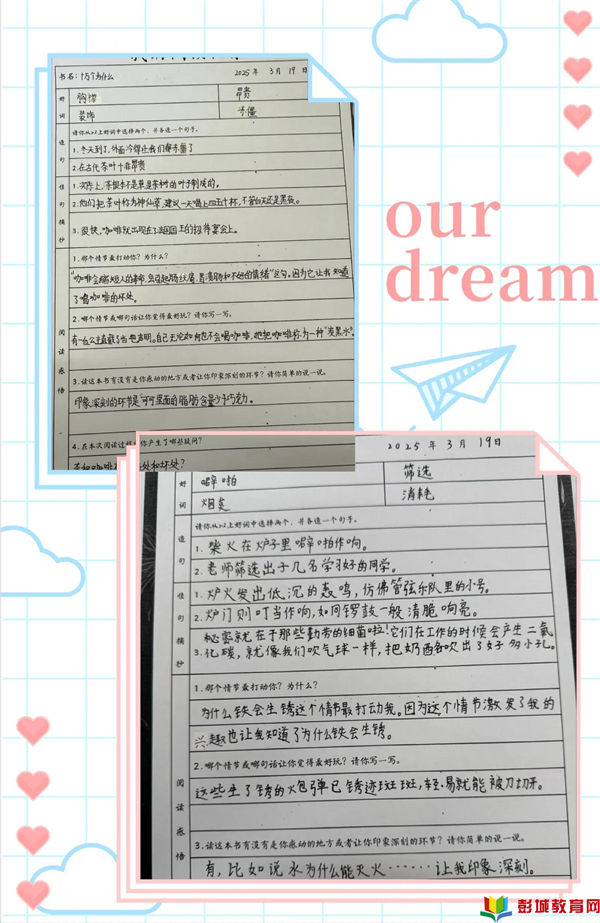 书名：十万个为什么
2025年 3月 19日
好词
胸襟 昂贵
装饰 予僵
请你从以上好词中选择两个，并各造一个句子。
造句
1.冬天到了，外面冷得让我们都予僵了
2.在古代茶叶十非昂贵
佳句摘抄
1.实际上，茶根本不是草是茶树的叶子制成的。
2.他们把茶叶称为神仙草，建议一天喝上四五十杯，不管白天还是黑夜。
3.很快，咖啡就出现在了法国国王的招待宴会上。
1.哪个情节最打动你？为什么？
了喝咖啡的坏处。
2.哪个情节或哪句话让你觉得最好玩？请你写一写。
有一位公主直截了当地声明，自己无论如何也不会喝咖啡，她把咖啡称为一种“炭黑水”。
阅读感悟
3.读这本书有没有是你感动的地方或者让你印象深刻的环节？请你简单的说一说。
印象深刻的环节是可可里面的脂肪含量少于巧克力。
4.在本次阅读过 你产生了哪些疑问？
our
dream
2025年 3月 19日
好词
噼啪 筛选
消耗
请你从以上好词中选择两个，并各造一个句子。
造句
1.柴火在炉子里噼啪作响。
2.老师筛选出了几名学习好的同学。
佳句摘抄
1.炉火发出低沉的轰鸣，仿佛管弦乐队里的小号。
2.炉门则叮当作响，如同锣鼓一般清脆响亮。
秘密就在于那些勤劳的细菌啦！它们在工作的时候会产生二氧
3.化碳，就像我们吹气球一样，把奶酪吹出了好多小孔。
1.哪个情节最打动你？为什么？
为什么铁会生锈这个情节最打动我。因为这个情节激发了我的
兴趣也让我知道了为什么铁会生锈。
2.哪个情节或哪句话让你觉得最好玩？请你写一写。
这些生了锈的火包弹已锈迹斑斑，轻易就能被刀切开。
阅读感悟
3.读这本书有没有是你感动的地方或者让你印象深刻的环节？请你简单的说一说。
有，比如说水为什么能灭火……让我印象深刻。
彭城教育网